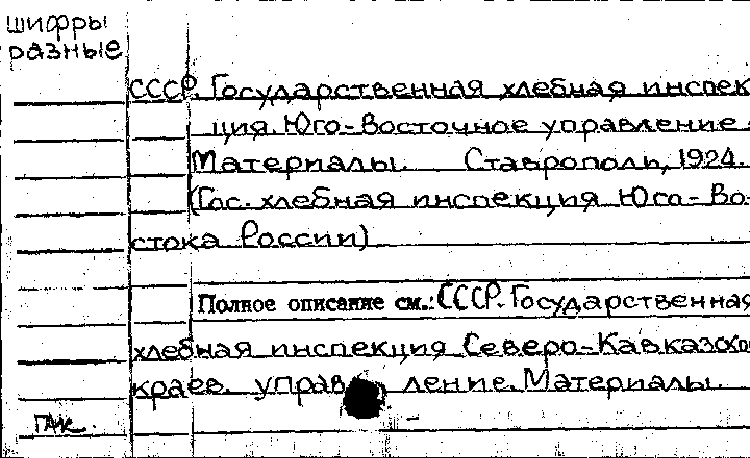 шифры
разные
СССР. Государственная хлебная инспек
ция. Юго-Восточное управление.
Материалы. Ставрополь, 1924.
(Гос. хлебная инспекция Юго-Во-
стока России)
Полное описание см.: СССР. Государственная
хлебная инспекция Северо-Кавказско
краев. управление. Материалы.
ГАК.